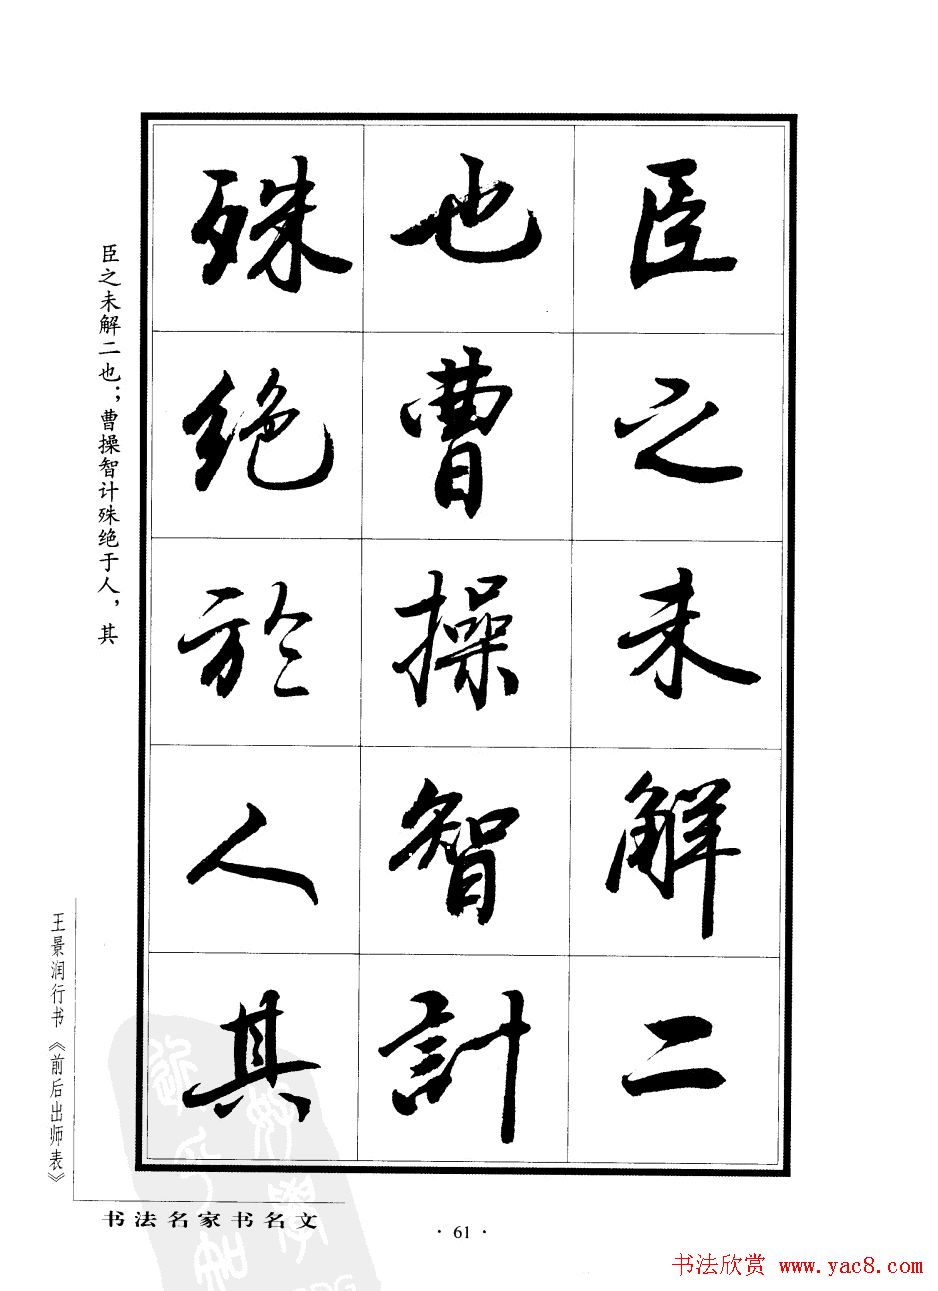 臣之未解二
也曹操智計
殊绝於人其
臣之未解二也；曹操智计殊绝于人，其
王景润行书《前后出师表》
书法名家书名文
·61·
书法欣赏 www.yac8.com